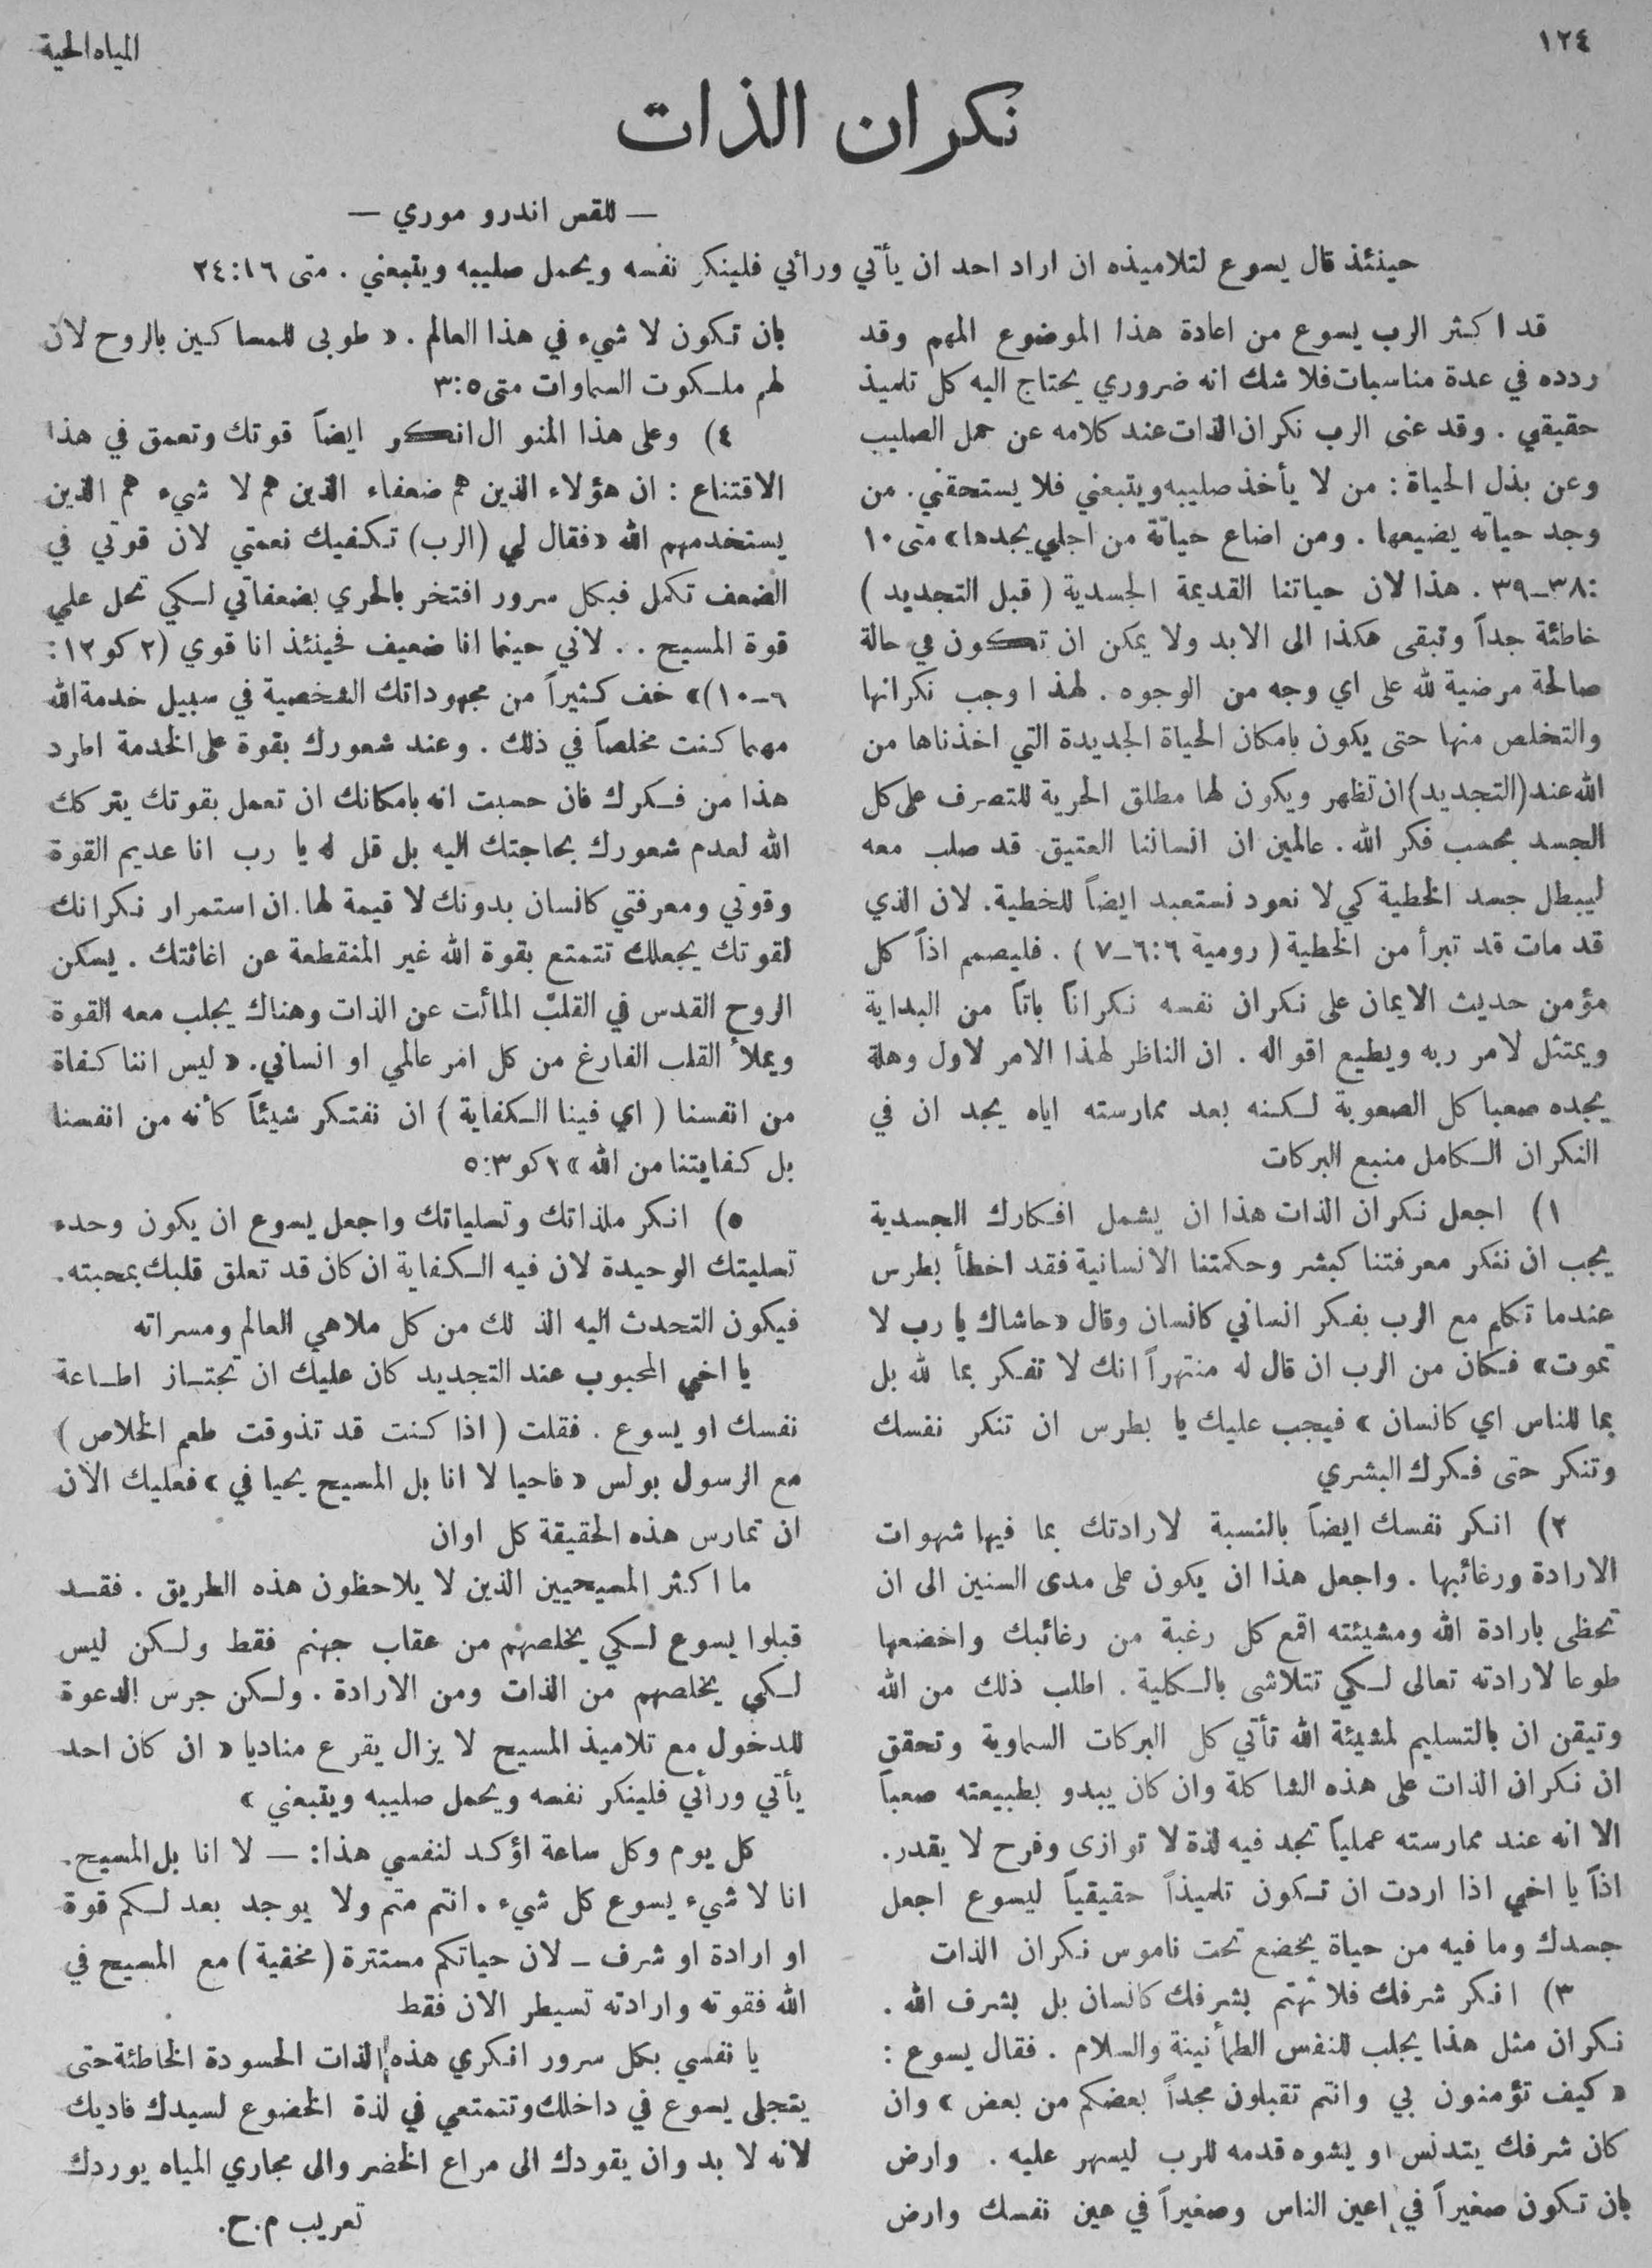 ١٢٤
المياه الحية
نكران الذات
— للقس اندرو موري —
حينئذ قال يسوع لتلاميذه ان اراد احد ان يأتي ورائي فلينكر نفسه ويحمل صليبه ويتبعني . متى ٢٤:١٦
قد اكثر الرب يسوع من اعادة هذا الموضوع المهم وقد
ردده في عدة مناسبات فلا شك انه ضروري يحتاج اليه كل تلميذ
حقيقي . وقد عنى الرب نكران الذات عند كلامه عن حمل الصليب
وعن بذل الحياة : من لا يأخذ صليبه ويتبعني فلا يستحقني . من
وجد حياته يضيعها . ومن اضاع حياتة من اجلي يجدها» متى ١٠
:٣٨–٣٩ . هذا لان حياتنا القديمة الجسدية ( قبل التجديد )
خاطئة جداً وتبقى هكذا الى الابد ولا يمكن ان تكون في حالة
صالحة مرضية لله على اي وجه من الوجوه . لهذا وجب نكرانها
والتخلص منها حتى يكون بامكان الحياة الجديدة التي اخذناها من
الله عند (التجديد) ان تظهر ويكون لها مطلق الحرية للتصرف على كل
الجسد بحسب فكر الله . عالمين ان انساننا العتيق قد صلب معه
ليبطل جسد الخطية كي لا نعود نستعبد ايضاً للخطية . لان الذي
قد مات قد تبرأ من الخطية ( رومية ٦:٦–٧ ) . فليصمم اذاً كل
مؤمن حديث الايمان على نكران نفسه نكراناً باتاً من البداية
ويمتثل لامر ربه ويطيع اقواله . ان الناظر لهذا الامر لاول وهلة
يجده صعبا كل الصعوبة لكنه بعد ممارسته اياه يجد ان في
النكران الكامل منبع البركات
١) اجعل نكران الذات هذا ان يشمل افكارك الجسدية
يجب ان ننكر معرفتنا كبشر وحكمتنا الانسانية فقد اخطأ بطرس
عندما تكلم مع الرب بفكر انساني كانسان وقال «حاشاك يا رب لا
تموت» فكان من الرب ان قال له منتهراً انك لا تفكر بما لله بل
بما للناس اي كانسان» فيجب عليك يا بطرس ان تنكر نفسك
وتنكر حتى فكرك البشري
٢) انكر نفسك ايضاً بالنسبة لارادتك بما فيها شهوات
الارادة ورغائبها . واجعل هذا ان يكون على مدى السنين الى ان
تحظى بارادة الله ومشيئته اقمع كل رغبة من رغائبك واخضعها
طوعا لارادته تعالى لكي تتلاشى بالكلية . اطلب ذلك من الله
وتيقن ان بالتسليم لمشيئة الله تأتي كل البركات السماوية وتحقق
ان نكران الذات على هذه الشاكلة وان كان يبدو بطبيعته صعباً
الا انه عند ممارسته عملياً تجد فيه لذة لا توازى وفرح لا يقدر .
اذاً يا اخي اذا اردت ان تكون تلميذاً حقيقياً ليسوع اجعل
جسدك وما فيه من حياة يخضع تحت ناموس نكران الذات
٣) انكر شرفك فلا تهتم بشرفك كانسان بل بشرف الله .
نكران مثل هذا يجلب للنفس الطمأنينة والسلام . فقال يسوع :
« كيف تؤمنون بي وانتم تقبلون مجداً بعضكم من بعض » وان
كان شرفك يتدنس او يشوه قدمه للرب ليسهر عليه . وارض
بان تكون صغيراً في اعين الناس وصغيراً في عين نفسك وارض
بان تكون لا شيء في هذا العالم . « طوبى للمساكين بالروح لان
لهم ملكوت السماوات متى ٣:٥
٤) وعلى هذا المنوال انكر ايضاً قوتك وتعمق في هذا
الاقتناع : ان هؤلاء الذين هم ضعفاء الذين هم لا شيء هم الذين
يستخدمهم الله «فقال لي (الرب) تكفيك نعمتي لان قوتي في
الضعف تكمل فبكل سرور افتخر بالحري بضعفاتي لكي تحل علي
قوة المسيح . . لاني حينما انا ضعيف فحينئذ انا قوي (٢ كو ١٢ :
٦–١٠)» خف كثيراً من مجهوداتك الشخصية في سبيل خدمة الله
مهما كنت مخلصاً في ذلك . وعند شعورك بقوة على الخدمة اطرد
هذا من فكرك فان حسبت انه بامكانك ان تعمل بقوتك يتركك
الله لعدم شعورك بحاجتك اليه بل قل له يا رب انا عديم القوة
وقوتي ومعرفتي كانسان بدونك لا قيمة لها . ان استمرار نكرانك
لقوتك يجعلك تتمتع بقوة الله غير المنقطعة عن اغاثتك . يسكن
الروح القدس في القلب المائت عن الذات وهناك يجلب معه القوة
ويملأ القلب الفارغ من كل امر عالمي او انساني . « ليس اننا كفاة
من انفسنا ( اي فينا الكفاية ) ان نفتكر شيئاً كأنه من انفسنا
بل كفايتنا من الله » ٢ كو ٥:٣
٥) انكر ملذاتك وتسلياتك واجعل يسوع ان يكون وحده
تسليتك الوحيدة لان فيه الكفاية ان كان قد تعلق قلبك بمحبته .
فيكون التحدث اليه الذ لك من كل ملاهي العالم ومسراته
يا اخي المحبوب عند التجديد كان عليك ان تجتاز اطاعة
نفسك او يسوع . فقلت ( اذا كنت قد تذوقت طعم الخلاص )
مع الرسول بولس « فاحيا لا انا بل المسيح يحيا في » فعليك الان
ان تمارس هذه الحقيقة كل اوان
ما اكثر المسيحيين الذين لا يلاحظون هذه الطريق . فقد
قبلوا يسوع لكي يخلصهم من عقاب جهنم فقط ولكن ليس
لكي يخلصهم من الذات ومن الارادة . ولكن جرس الدعوة
للدخول مع تلاميذ المسيح لا يزال يقرع مناديا « ان كان احد
يأتي ورائي فلينكر نفسه ويحمل صليبه ويتبعني »
كل يوم وكل ساعة اؤكد لنفسي هذا : — لا انا بل المسيح .
انا لا شيء يسوع كل شيء . انتم متم ولا يوجد بعد لكم قوة
او ارادة او شرف – لان حياتكم مستترة ( مخفية ) مع المسيح في
الله فقوته وارادته تسيطر الان فقط
يا نفسي بكل سرور انكري هذه الذات الحسودة الخاطئة حتى
يتجلى يسوع في داخلك وتتمتعي في لذة الخضوع لسيدك فاديك
لانه لا بد وان يقودك الى مراع الخضر والى مجاري المياه يوردك
تعريب م.ح.